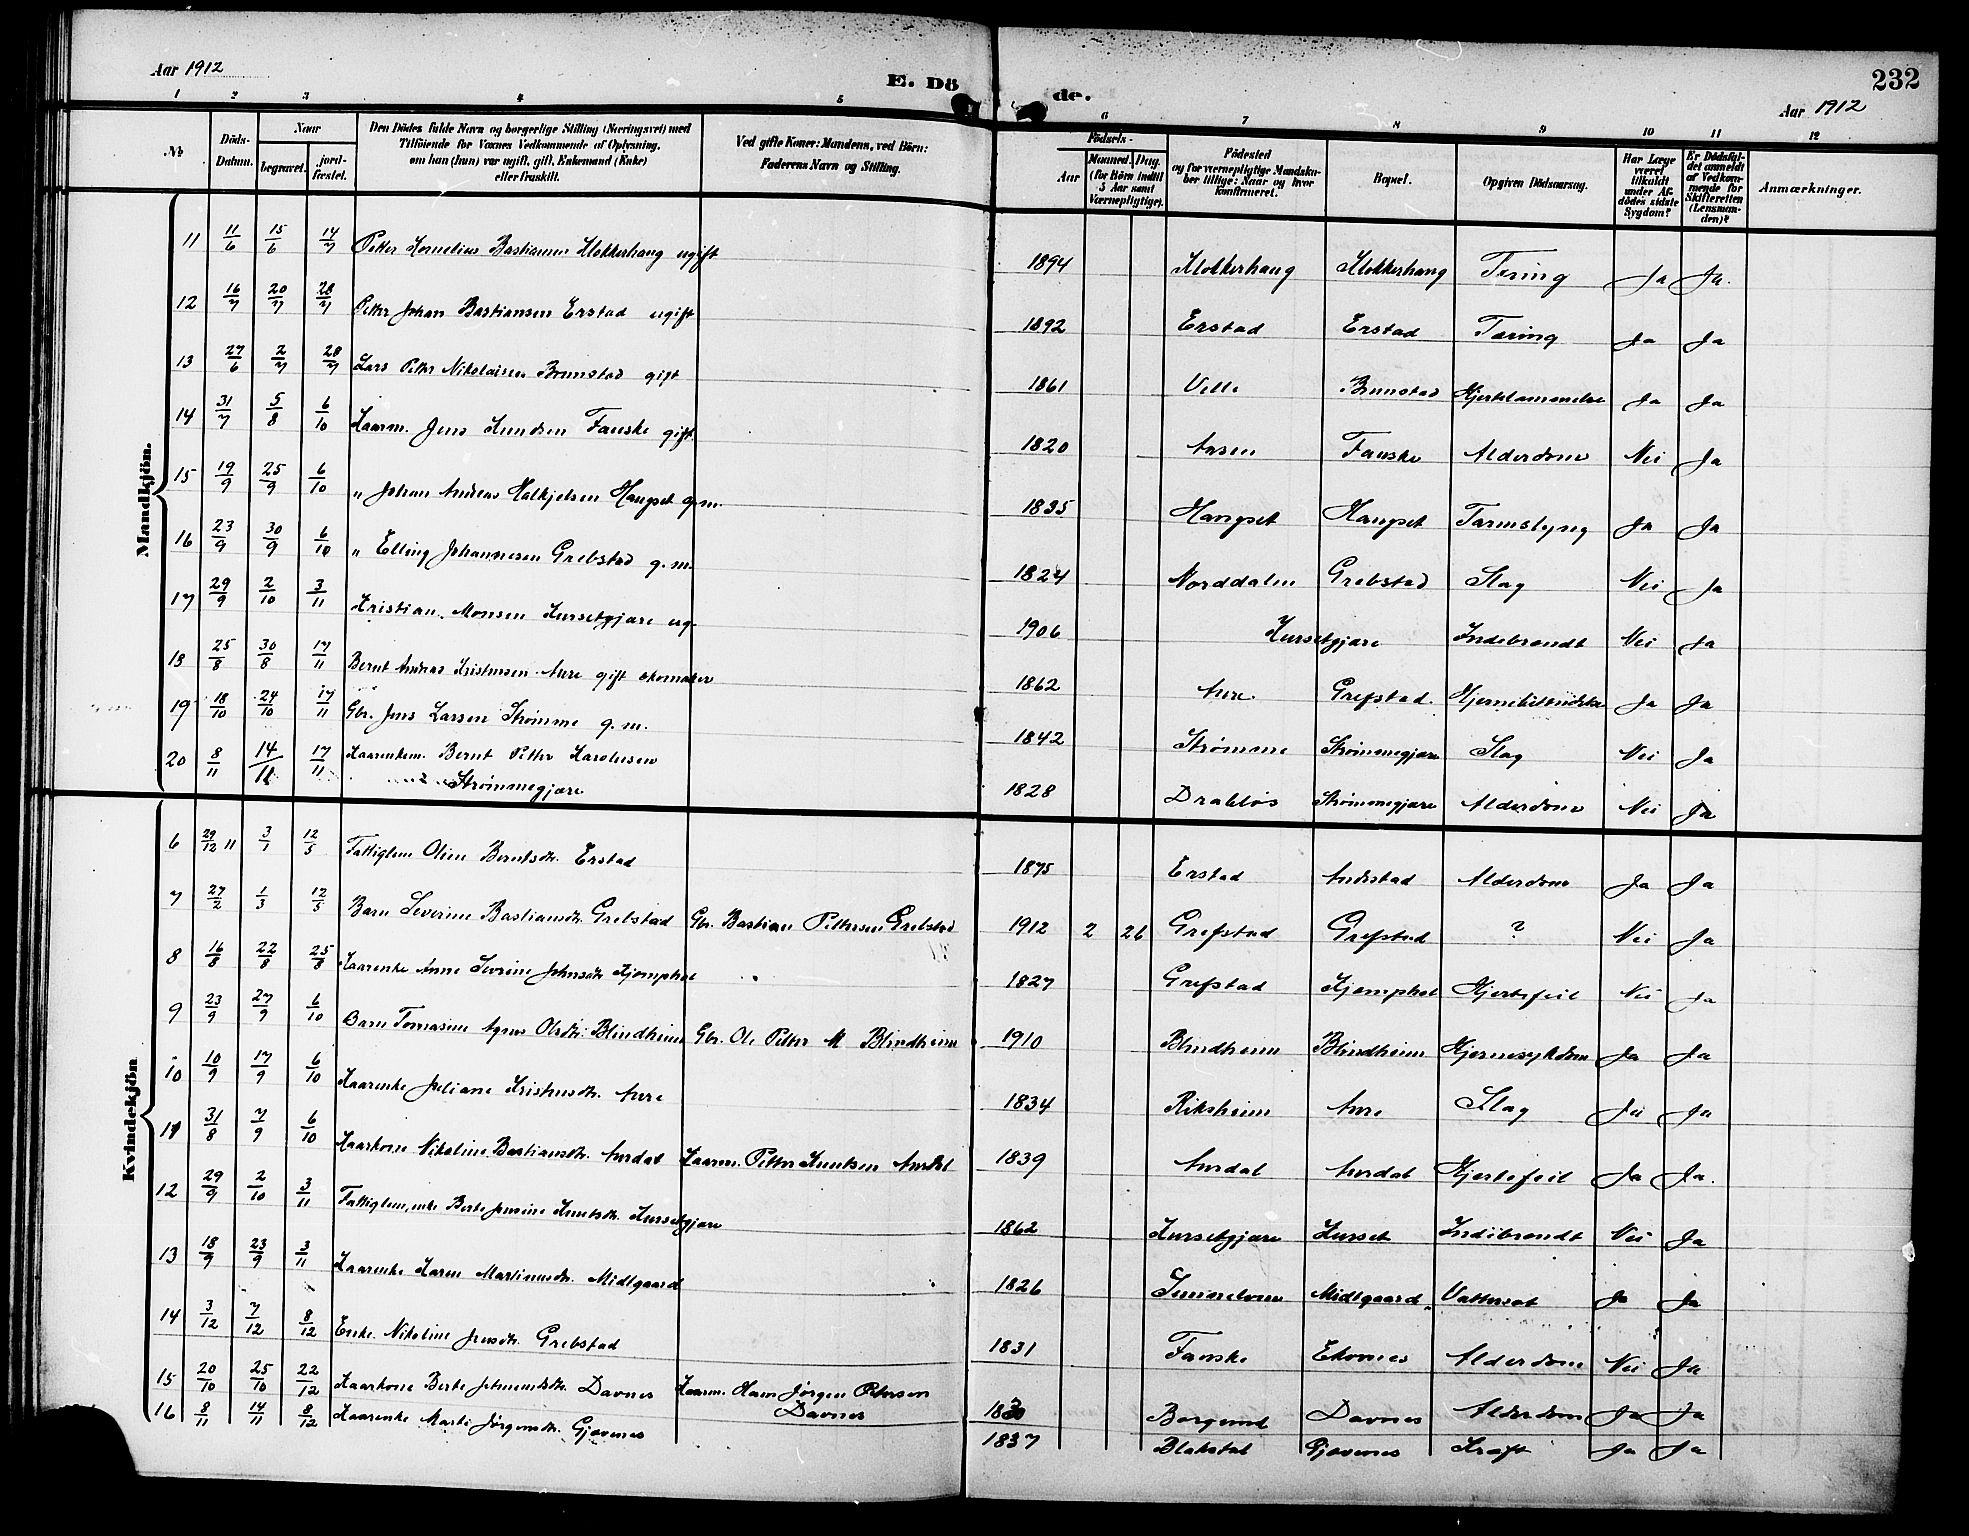 Aar 1912
E. Dö de.
232
Aar 1912
1 2 3 4 5 6 7 8 9 10 11 12
№
Döds-Datum.
Naar
begravet.
jord-fæstet.
Den Dödes fulde Navn og borgerlige Stilling (Næringsvei) med
Tilföiende for Voxnes Vedkommende af Oplysning,
om han (hun) var ugift, gift, Enkemand (Enke)
eller fraskilt.
Ved gifte Koner: Mandens, ved Börn:
Faderens Navn og Stilling.
Födsels-
Aar
Maaned. Dag.
(for Börn indtil
5 Aar samt
Værnepligtige).
Födested
og for værnepligtige Mandska-
ber tillige: Naar og hvor
konfirmeret.
Bopæl.
Opgiven Dödsaarsag.
Har Læge
været
tilkaldt
under Af-
dödes sidste
Sygdom?
Er Dödsfal-
det anmeldt
af Vedkom-
mende for
Skifteretten
(Lensman-
den)?
Anmærkninger.
Mandkjön.
11 11/6 15/6 14/7 Petter Kornelius Bastiansen Klokkerhaug ugift 1894 Klokkerhaug Klokkerhaug Tæring Ja Ja.
12 16/7 20/7 28/7 Petter Johan Bastiansen Erstad ugift 1892 Erstad Erstad Tæring Ja Ja
13 27/6 2/7 28/7 Lars Petter Nikolaisen Brunstad gift 1861 Velle Brunstad Hjertelammelse Ja Ja
14 31/7 5/8 6/10 Kaarm. Jens Knudsen Fauske gift 1820 Aasen Fauske Alderdom Nei Ja
15 19/9 25/9 6/10 " Johan Andreas Halkjelsen Haugset g.m. 1835 Haugset Haugset Tarmslyng Ja Ja
16 23/9 30/9 6/10 " Elling Johannesen Grebstad g.m. 1824 Norddalen Grebstad Slag Nei Ja
17 29/9 2/10 3/11 Kristian Monsen Kursetgjære ug. 1906 Kursetgjære Indebrændt Nei Ja
18 25/8 30/8 17/11 Bernt Andreas Kristensen Aure gift skomaker 1862 Aure Grefstad Ja Ja
19 18/10 24/10 17/11 Gbr. Jens Larsen Strømme g.m. 1842 Strømme Strømmegjære Slag Nei Ja
20 8/11 14/11 17/11 Kaarenkem. Bernt Petter Karolusen
Strømmegjære 1828 Drabløs Strømmegjære Alderdom Nei Ja
Kvindekjön
6 29/12 11 3/1 12/5 Fattiglem Oline Berntsdtr. Erstad 1875 Erstad Andestad Alderdom Ja Ja
7 27/2 1/3 12/5 Barn Severine Bastiansdtr. Grebstad Gbr. Bastian Pettersen Grebstad 1912 2 26 Grefstad Grefstad ? Nei Ja
8 16/8 22/8 25/8 Kaarenke Anne Severine Johnsdtr. Kjemphol 1827 Grefstad Kjemphol Hjertefeil Nei Ja
9 23/9 27/9 6/10 Barn Tomasine Agnes Olsdtr. Blindheim Gbr. Ole Petter M Blindheim 1910 Blindheim Blindheim Hjernesykdom Ja Ja
10 10/9 17/9 6/10 Kaarenke Juliane Aure 1834 Riksheim Aure Slag Ja Ja
11 31/8 7/9 6/10 Kaarkone Nikoline Bastiansdtr. Aurdal Kaarm. Petter Knutsen Aurdal 1839 Aurdal Aurdal Hjertefeil Ja Ja.
12 29/9 2/10 3/11 Fattiglem, enke Berte Jensine Knutsdtr. Kursetgjære 1862 Kursetgjære Kurset Indebrændt Nei Ja
13 18/9 23/9 3/11 Kaarenke Karen Martinusdtr. Midtgaard 1826 Midtgaard Vattersot Ja Ja
14 3/12 7/12 8/12 Enke Nikoline Jensdtr. Grebstad 1831 Fauske Ekornes Alderdom Nei Ja
15 20/10 25/10 22/12 Kaarkone Berte Davnes Kaarm. Hans Jørgen Petersen
Davnes Borgund Davnes Alderdom Ja Ja
16 8/11 14/11 8/12 Kaarenke Marte Jørgensdtr. Gjævenes 1837 Blakstal Gjævenes Kræft Ja Ja